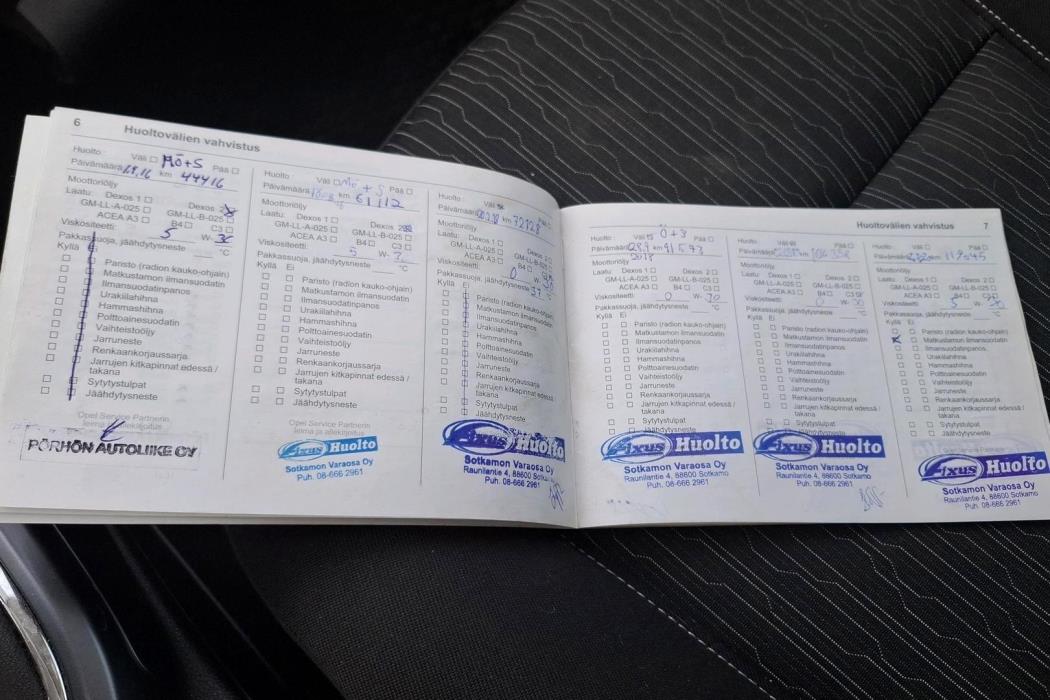 6
Huoltovälien vahvistus
Huolto: Väli Mö+S Pää
Päivämäärä km 44416
Moottoriöljy
Laatu: Dexos 1 Dexos 2
GM-LL-A-025 GM-LL-B-025
ACEA A3 B4 C3
Viskositeetti: 5 W- 30
Pakkassuoja, jäähdytysneste °C
Kyllä
Paristo (radion kauko-ohjain)
Matkustamon ilmansuodatin
Ilmansuodatinpanos
Urakiilahihna
Hammashihna
Polttoainesuodatin
Vaihteistoöljy
Jarruneste
Renkaankorjaussarja
Jarrujen kitkapinnat edessä /
takana
Sytytystulpat
Jäähdytysneste
Opel Service Partnerin
leima ja allekirjoitus
PÖRHÖN AUTOLIIKE OY
Huolto: Väli Mö + S Pää
Päivämäärä km 61112
Moottoriöljy
Laatu: Dexos 1 Dexos 2
GM-LL-A-025 GM-LL-B-025
ACEA A3 B4 C3
Viskositeetti: 5 W-
Pakkassuoja, jäähdytysneste °C
Kyllä Ei
Paristo (radion kauko-ohjain)
Matkustamon ilmansuodatin
Ilmansuodatinpanos
Urakiilahihna
Hammashihna
Polttoainesuodatin
Vaihteistoöljy
Jarruneste
Renkaankorjaussarja
Jarrujen kitkapinnat edessä /
takana
Sytytystulpat
Jäähdytysneste
Opel Service Partnerin
leima ja allekirjoitus
Fixus Huolto
Sotkamon Varaosa Oy
Puh. 08-666 2961
Huolto: Väli
Päivämäärä km 72728
Moottoriöljy
Laatu: Dexos 1 Dexos 2
GM-LL-A-025 GM-LL-B-025
ACEA A3 B4 C3
Viskositeetti: 0 W- 30
Pakkassuoja, jäähdytysneste °C
Kyllä Ei
Paristo (radion kauko-ohjain)
Matkustamon ilmansuodatin
Ilmansuodatinpanos
Urakiilahihna
Hammashihna
Polttoainesuodatin
Vaihteistoöljy
Jarruneste
Renkaankorjaussarja
Jarrujen kitkapinnat edessä /
takana
Sytytystulpat
Jäähdytysneste
Fixus Huolto
Sotkamon Varaosa Oy
Raunilantie 4, 88600 Sotkamo
Puh. 08-666 2961
Huoltovälien vahvistus 7
Huolto: Väli Ö+S Pää
Päivämäärä km 91573
2018
Moottoriöljy
Laatu: Dexos 1 Dexos 2
GM-LL-A-025 GM-LL-B-025
ACEA A3 B4 C3
Viskositeetti: 0 W- 30
Pakkassuoja, jäähdytysneste °C
Kyllä Ei
Paristo (radion kauko-ohjain)
Matkustamon ilmansuodatin
Ilmansuodatinpanos
Urakiilahihna
Hammashihna
Polttoainesuodatin
Vaihteistoöljy
Jarruneste
Renkaankorjaussarja
Jarrujen kitkapinnat edessä /
takana
Sytytystulpat
Jäähdytysneste
Fixus Huolto
Sotkamon Varaosa Oy
Raunilantie 4, 88600 Sotkamo
Puh. 08-666 2961
Huolto: Pää
Päivämäärä km
Moottoriöljy
Laatu: Dexos 1 Dexos 2
GM-LL-A-025 GM-LL-B-025
ACEA A3 B4 C3
Viskositeetti: 0 W- 30
Pakkassuoja, jäähdytysneste °C
Kyllä Ei
Paristo (radion kauko-ohjain)
Matkustamon ilmansuodatin
Ilmansuodatinpanos
Urakiilahihna
Hammashihna
Polttoainesuodatin
Vaihteistoöljy
Jarruneste
Renkaankorjaussarja
Jarrujen kitkapinnat edessä /
takana
Sytytystulpat
Jäähdytysneste
Fixus Huolto
Sotkamon Varaosa Oy
Raunilantie 4, 88600 Sotkamo
Puh. 08-666 2961
Huolto: Väli Pää
Päivämäärä km
Moottoriöljy
Laatu: Dexos 1 Dexos 2
GM-LL-A-025 GM-LL-B-025
ACEA A3 B4 C3
Viskositeetti: 5 W-
Pakkassuoja, jäähdytysneste °C
Kyllä Ei
Paristo (radion kauko-ohjain)
Matkustamon ilmansuodatin
Ilmansuodatinpanos
Urakiilahihna
Hammashihna
Polttoainesuodatin
Vaihteistoöljy
Jarruneste
Renkaankorjaussarja
Jarrujen kitkapinnat edessä /
takana
Sytytystulpat
Jäähdytysneste
Fixus Huolto
Sotkamon Varaosa Oy
Raunilantie 4, 88600 Sotkamo
Puh. 08-666 2961